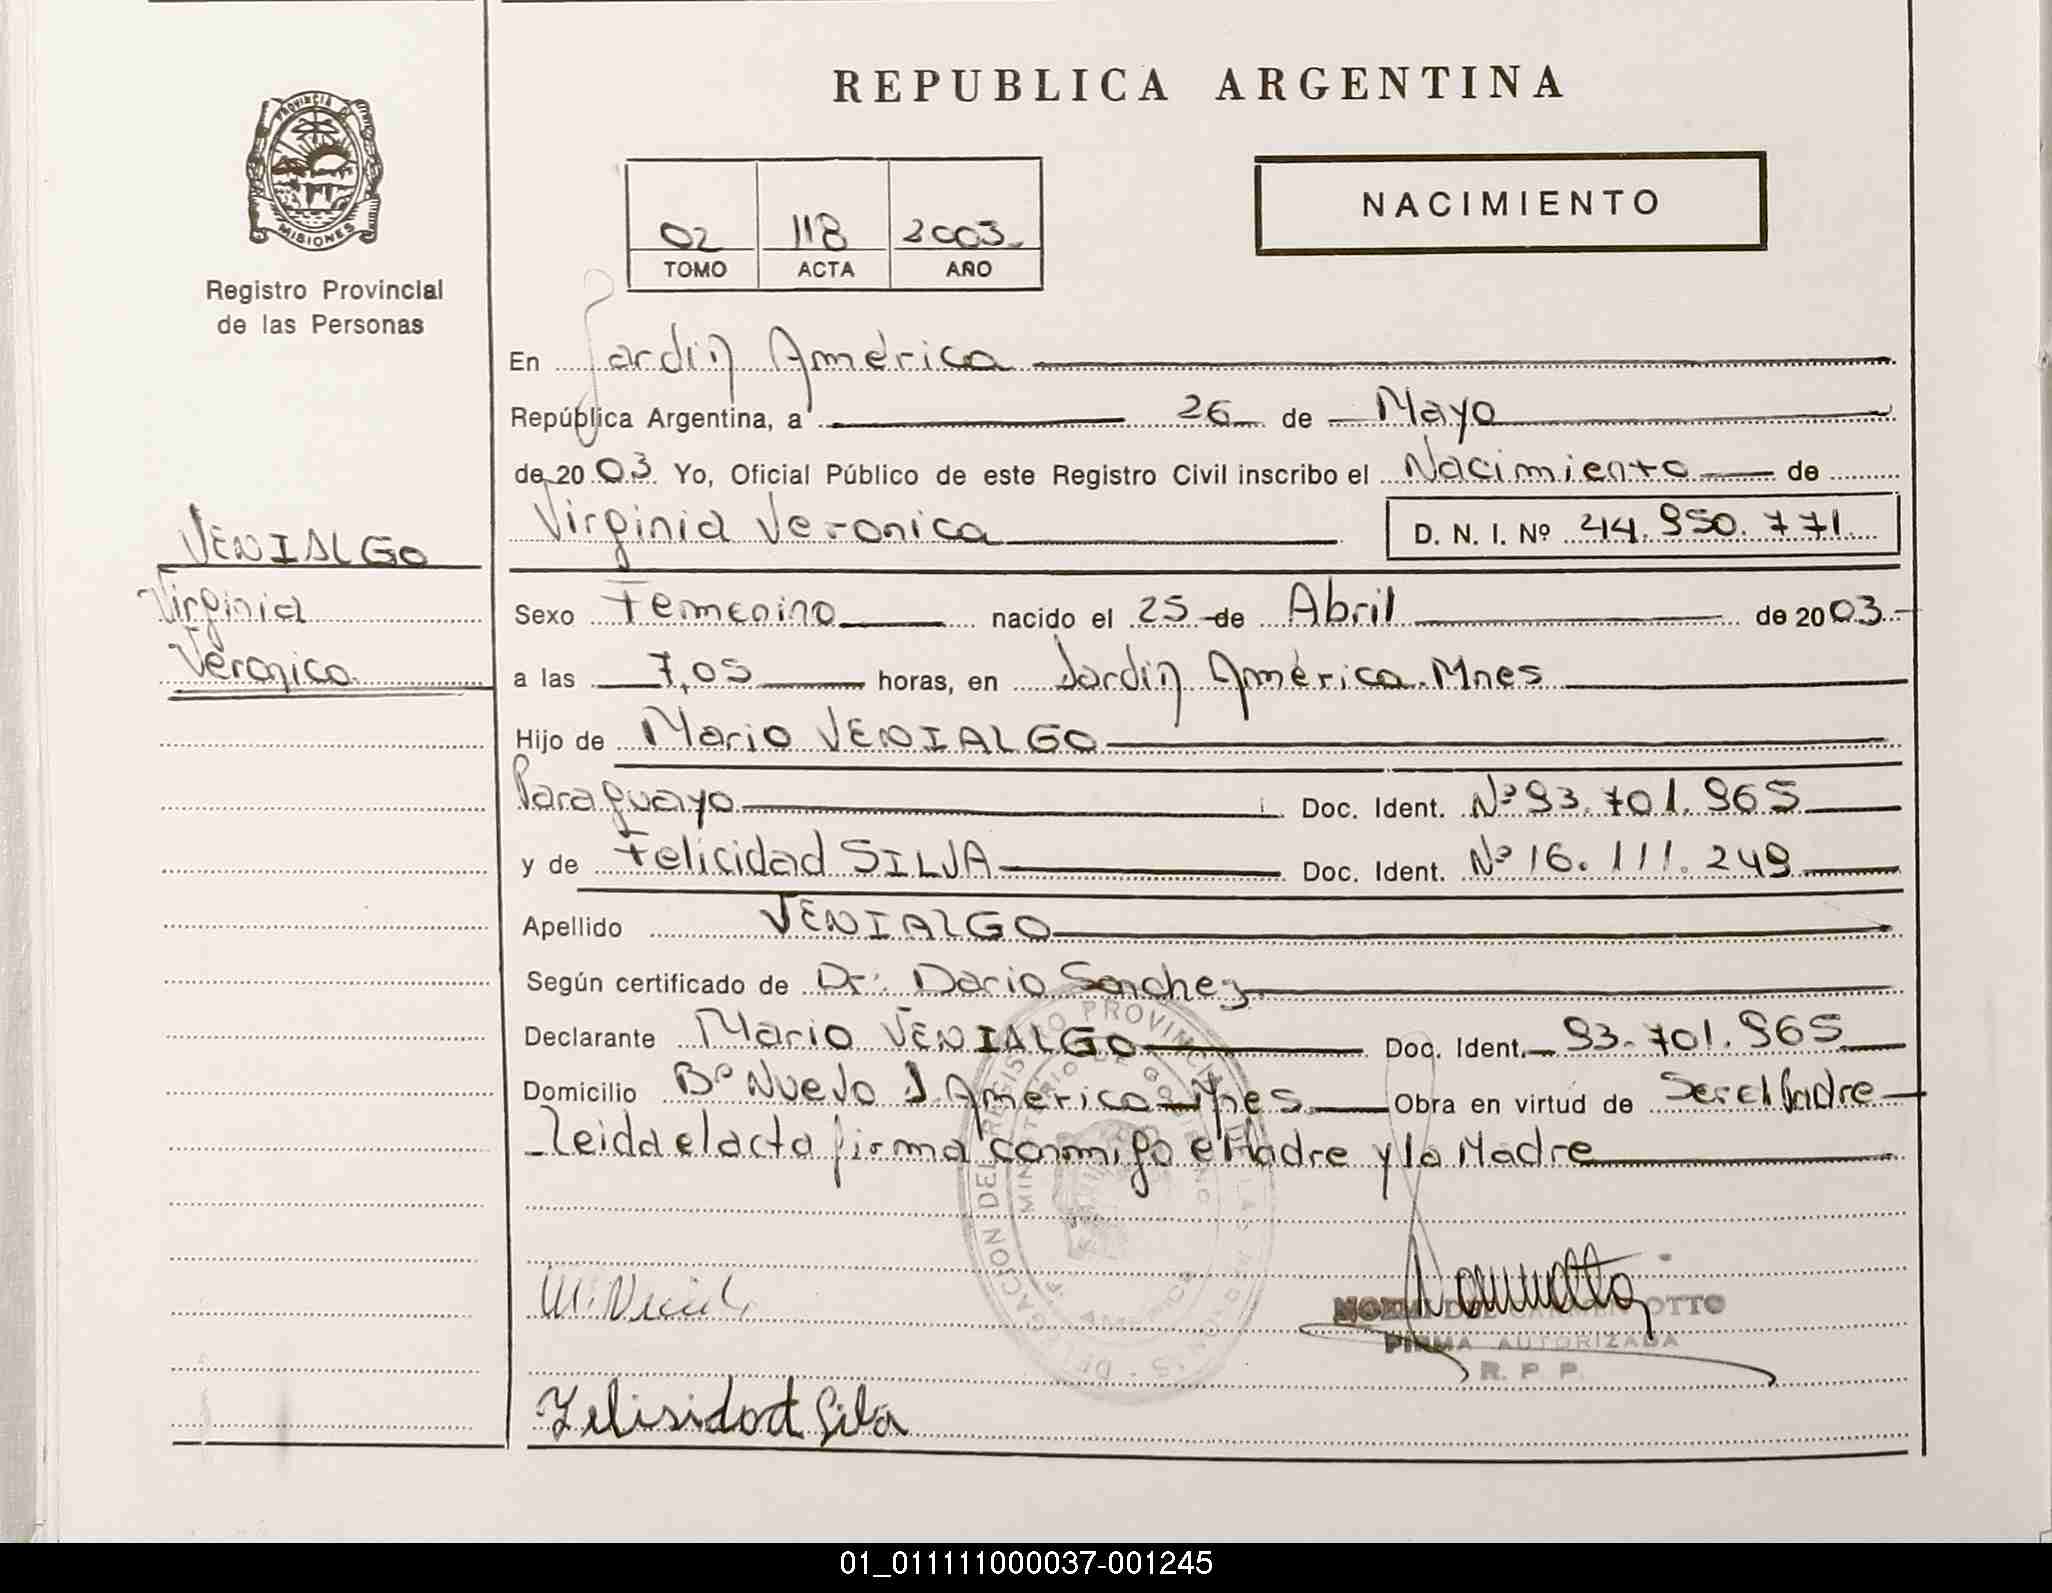 REPUBLICA ARGENTINA
PROVINCIA DE
MISIONES
Registro Provincial
de las Personas
02 118 2003
TOMO ACTA AÑO
NACIMIENTO
En Jardín América
República Argentina, a 26 de Mayo
de 2003 Yo, Oficial Público de este Registro Civil inscribo el Nacimiento de
Virginia Veronica D. N. I. Nº 44.950.771
VENIALGO
Virginia
Veronica
Sexo Femenino nacido el 25 de Abril de 2003
a las 7,05 horas, en Jardín América. Mnes
Hijo de Mario VENIALGO
Paraguayo Doc. Ident. Nº 93.701.965
y de Felicidad SILVA Doc. Ident. Nº 16.111.249
Apellido VENIALGO
Según certificado de Dr. Dario Sanchez
Declarante Mario VENIALGO Doc. Ident. 93.701.965
Domicilio Bº Nuevo J. America Mnes Obra en virtud de Ser el Padre
Leida el acta firma conmigo el Padre y la Madre
DELEGACION DEL REGISTRO PROVINCIAL DE LAS PERSONAS
MINISTERIO DE GOBIERNO
AMERICA
OTTO
FIRMA AUTORIZADA
R. P. P.
Felisidad Silva
01_011111000037-001245